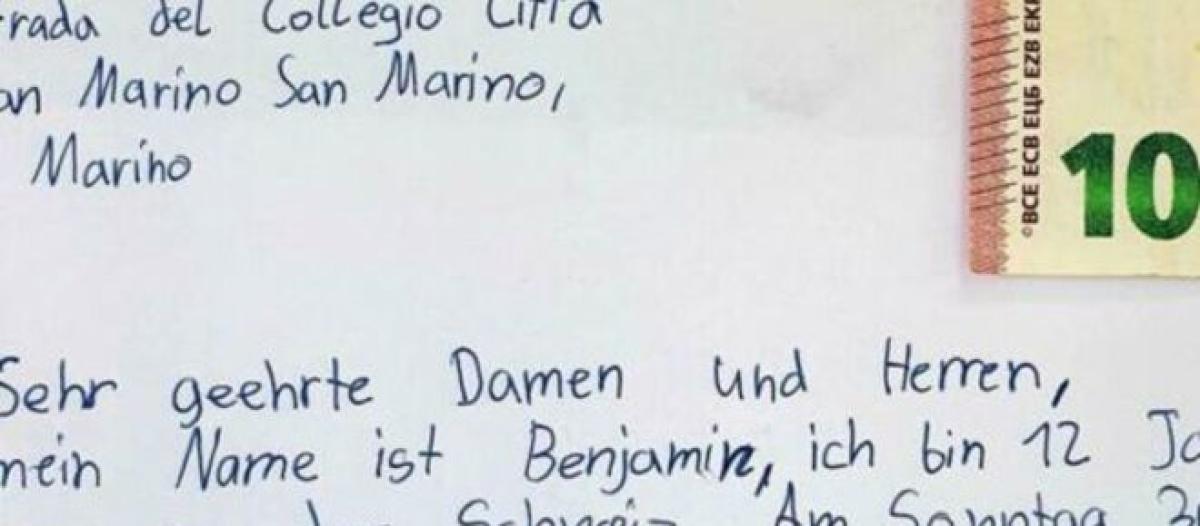 rada del Collegio Citta
an Marino San Marino,
Marino
©BCE ECB ЕЦБ EZB EK
10
Sehr geehrte Damen und Herren,
mein Name ist Benjamin, ich bin 12 Ja
Am Sonntag